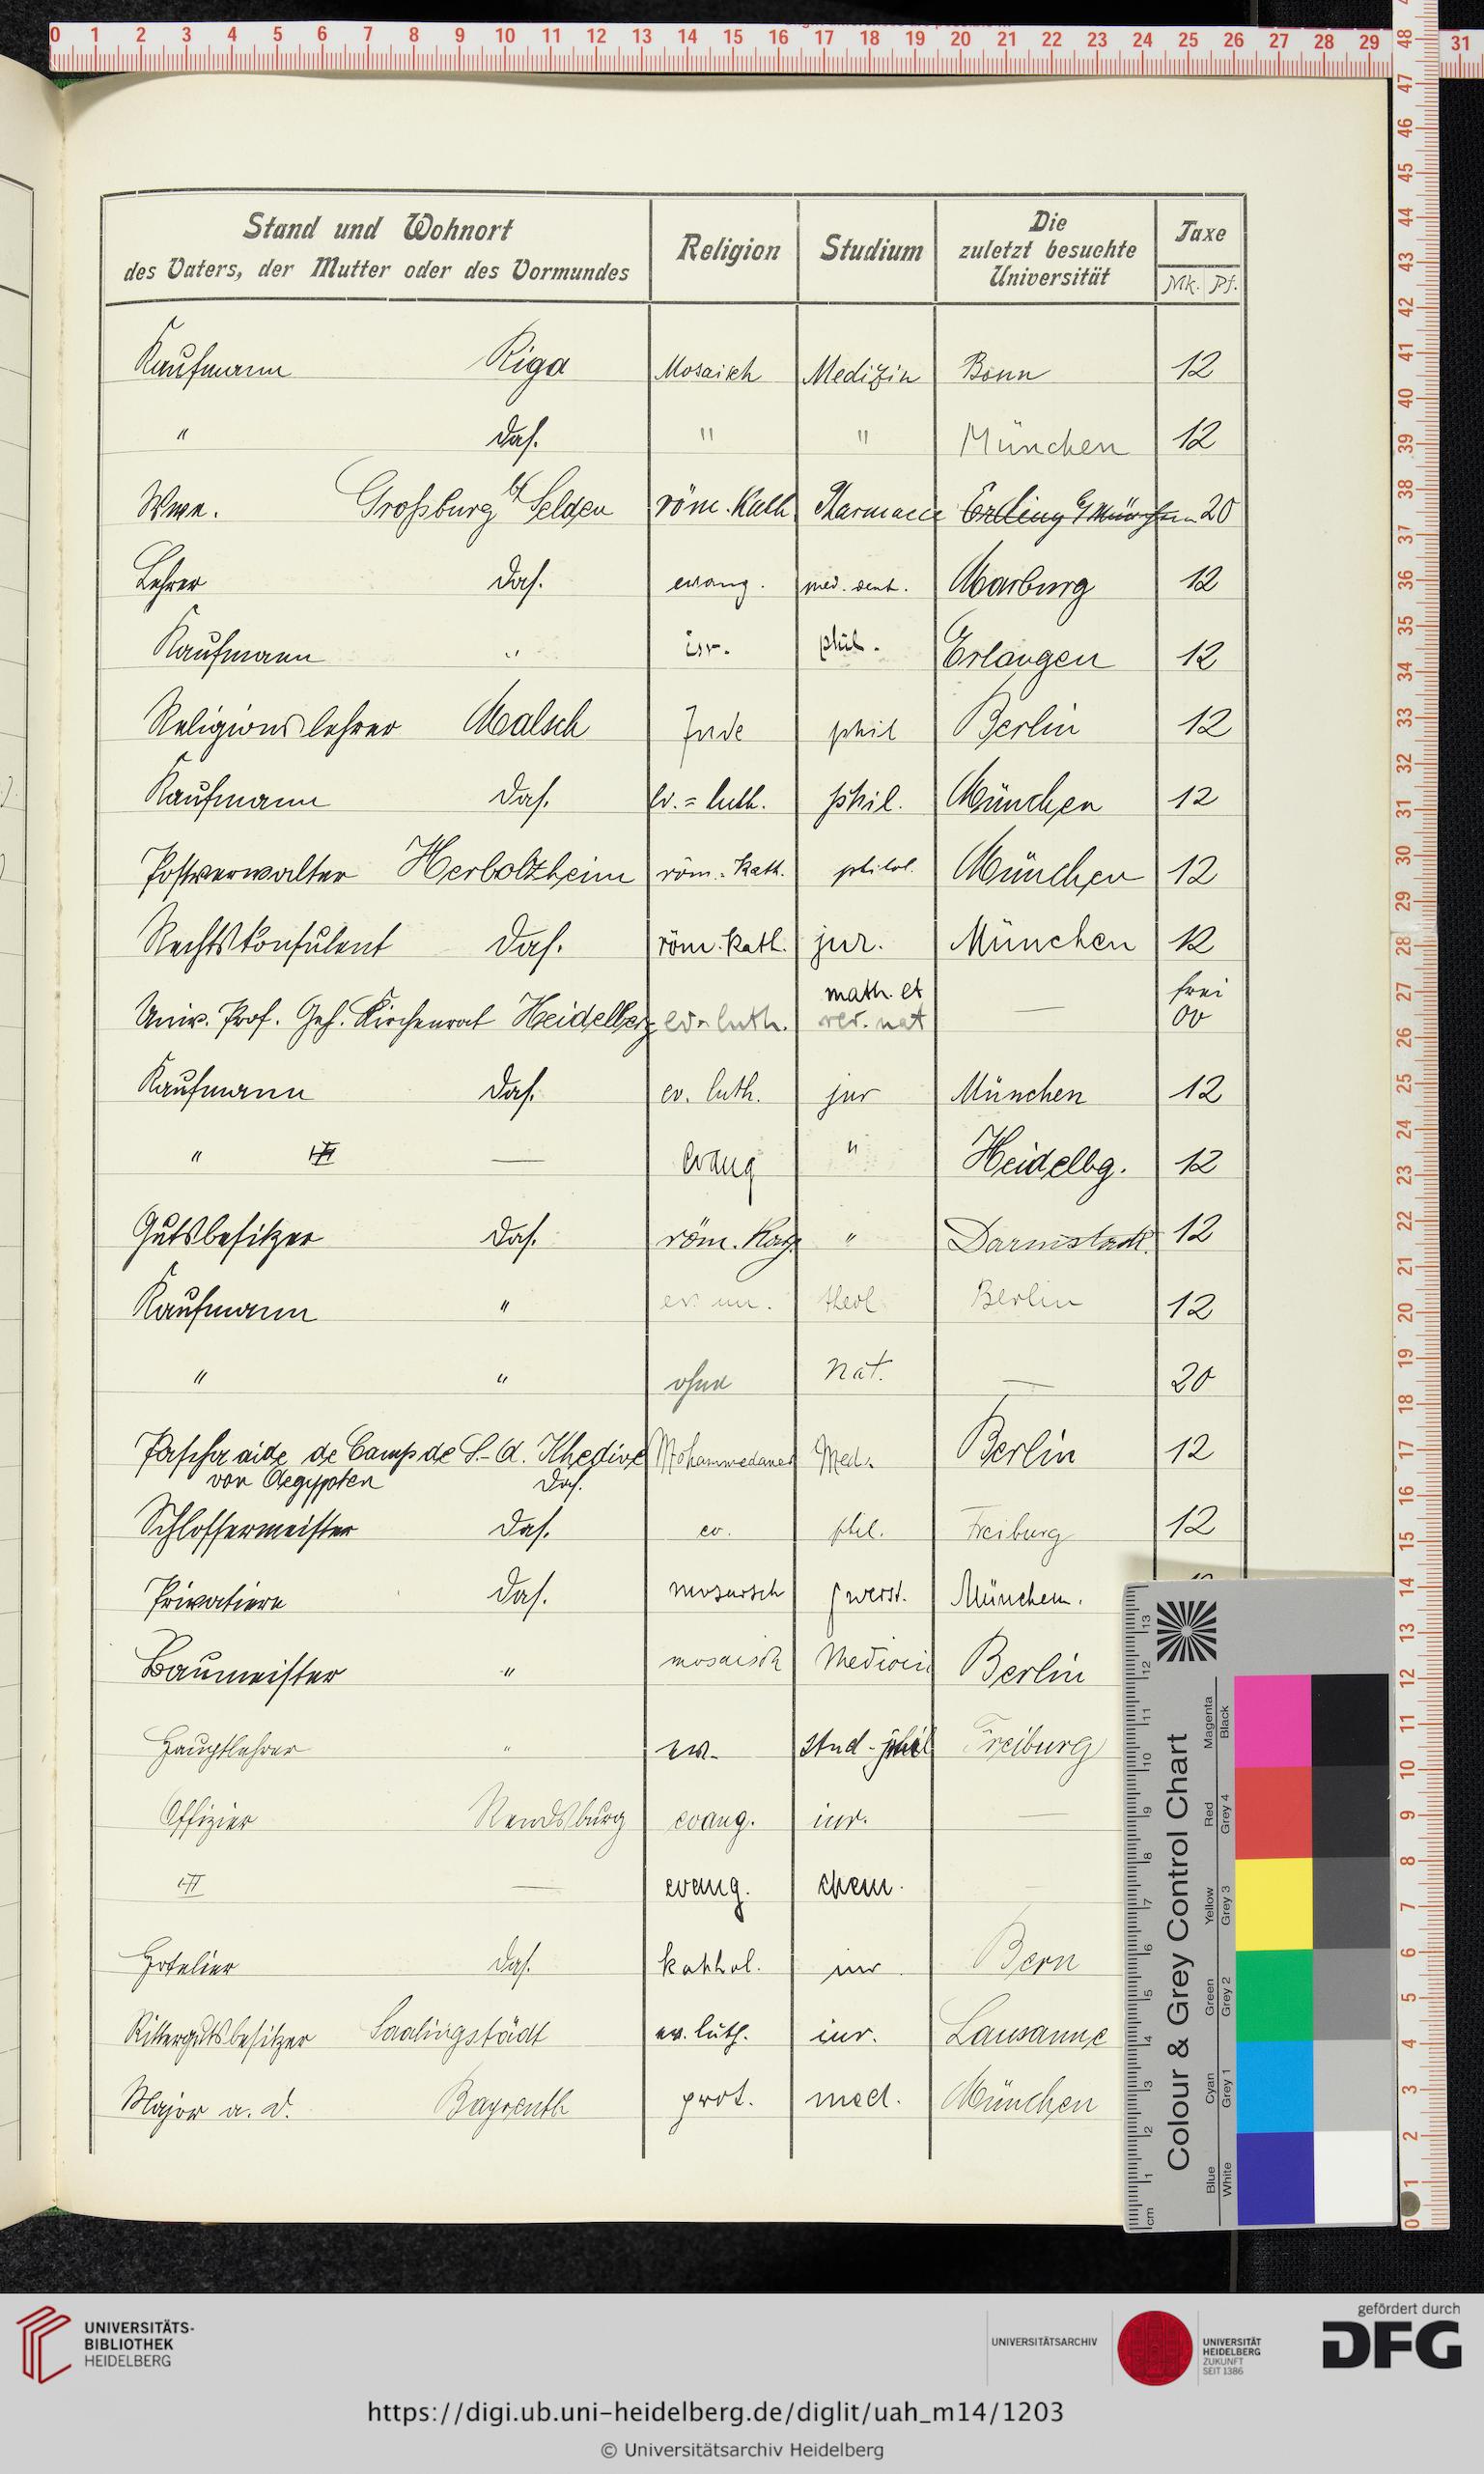 Stand und Wohnort
des Vaters, der Mutter oder des Vormundes
Religion
Studium
Die
zuletzt besuchte
Universität
Taxe
Mk. Pf.
Kaufmann Riga Mosaisch Medizin Bonn 12
" das. " " München 12
Wwe. Großburg b/ Selden röm. Kath. Pharmacie 20
Lehrer das. evang. med. dent. Marburg 12
Kaufmann " isr. phil. Erlangen 12
Religionslehrer Malsch Jude phil Berlin 12
Kaufmann das. Ev.=luth. phil. München 12
Postverwalter Herbolzheim röm.-kath. philol. München 12
Rechtskonsulent das. röm. kath. jur. München 12
Univ. Prof. Geh. Kirchenrat Heidelberg ev-luth. math. et rer. nat — frei 00
Kaufmann das. ev. luth. jur München 12
" — evang " Heidelbg. 12
Gutsbesitzer das. röm. Kath " Darmstadt. 12
Kaufmann " ev. un. theol Berlin 12
" " ohne Nat. — 20
Pascha aide de Camp de S. A. Khedive Mohammedaner Med. Berlin 12
von Aegypten das.
Schlossermeister das. ev. phil. Freiburg 12
Privatiere das. mosaisch München.
Baumeister " mosaisch Medicin Berlin
Hauptlehrer " ev. stud. phil Freiburg
Offizier Rendsburg evang. iur. —
— evang. chem. —
Hotelier das. kathol. iur. Bern
Rittergutsbesitzer Saalingstädt ev. luth. iur. Lausanne
Major a. D. Bayreuth prot. med. München
Colour & Grey Control Chart
Blue Cyan Green Yellow Red Magenta
White Grey 1 Grey 2 Grey 3 Grey 4 Black
UNIVERSITÄTS-
BIBLIOTHEK
HEIDELBERG
UNIVERSITÄTSARCHIV
UNIVERSITÄT
HEIDELBERG
ZUKUNFT
SEIT 1386
gefördert durch
DFG
https://digi.ub.uni-heidelberg.de/diglit/uah_m14/1203
© Universitätsarchiv Heidelberg